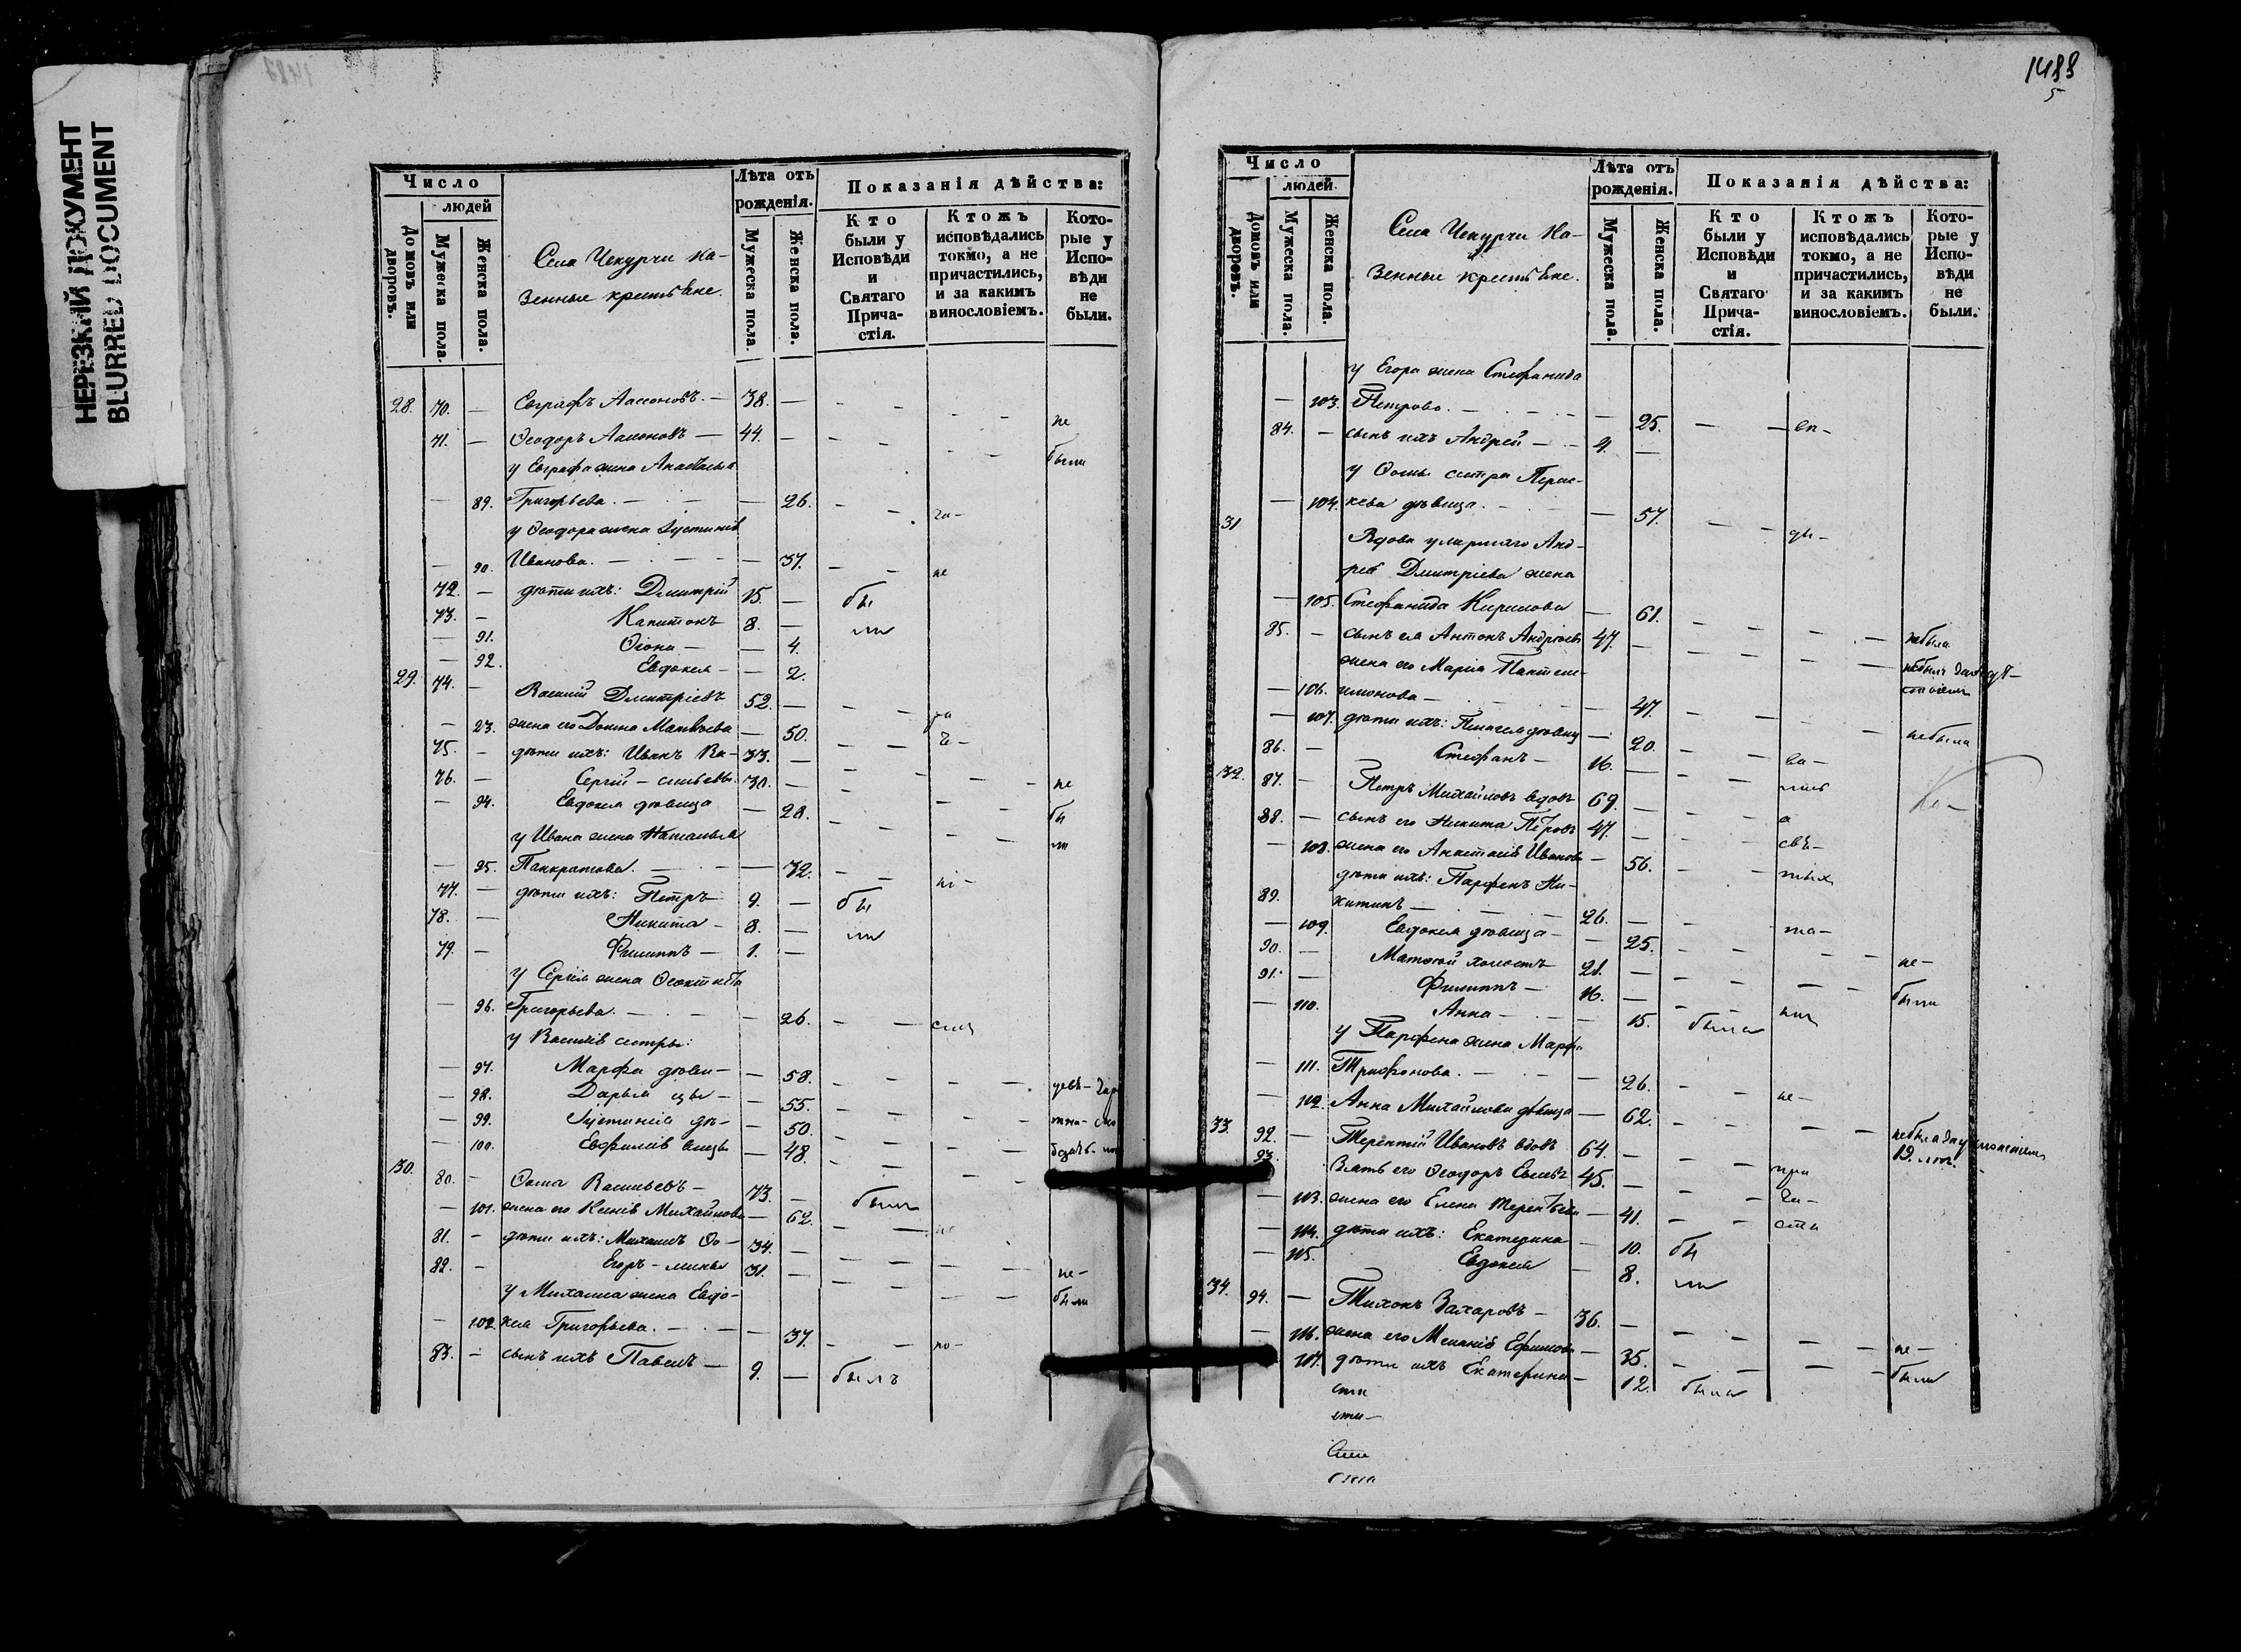 НЕРЕЗКИЙ ДОКУМЕНТ
BLURRED DOCUMENT
Число
людей
Домовъ или дворовъ.
Мужеска пола.
Женска пола.
Села Чекурчи Ка-
зенные крестьяне.
Лѣта отъ рожденія.
Мужеска пола.
Женска пола.
Показанія дѣйства:
Кто были у Исповѣди и Святаго Прича-стія.
Ктожъ исповѣдались токмо, а не причастились, и за какимъ винословіемъ.
Кото-рые у Испо-вѣди не были.
28. 70. — Евграфъ — 38. — не
71. — Ѳеодоръ — 44. — были
у Евграфа жена Анастасья
— 89. Григорьева. — 26.
у Ѳеодора жена Іустинія
— 90. Иванова. — 37. не
72. — дѣти ихъ: Дмитрій 15. — бы
73. — Капитонъ 8. — ли
— 91. — 4.
— 92. Евдокія — 2.
29. 74. — Василій Дмитріевъ 52. —
— 93. жена его Домна Матвѣева — 50.
75. — дѣти ихъ: Иванъ Ва- 33. —
76. — Сергій — сильевы. 30. — не
— 94. Евдокія дѣвица — 28. бы
у Ивана жена Наталья ли
— 95. Панкратова. — 32.
77. — дѣти ихъ: Петръ 9. — бы
78. — Никита — 8. — ли
79. — Филиппъ — 1. —
у Сергія жена Ѳеоктиста
— 96. Григорьева. — 26.
у Василія сестры:
— 97. Марфа дѣви- — 58.
— 98. Дарья цы — — 55.
— 99. Іустинія дѣ- — 50.
— 100. Евфимія вицы — 48.
30. 80. — Ѳома Васильевъ — 73. — были
— 101. жена его Ксенія Михайлова — 62.
81. — дѣти ихъ: Михаилъ Ѳо- 34. —
82. — Егоръ — мины 31. — не-
у Михаила жена Евдо- были
— 102. кія Григорьева. — 37.
83. — сынъ ихъ Павелъ — 9. — былъ
1488
5
Число
людей
Домовъ или дворовъ.
Мужеска пола.
Женска пола.
Села Чекурчи Ка-
зенные крестьяне.
Лѣта отъ рожденія.
Мужеска пола.
Женска пола.
Показанія дѣйства:
Кто были у Исповѣди и Святаго Прича-стія.
Ктожъ исповѣдались токмо, а не причастились, и за какимъ винословіемъ.
Кото-рые у Испо-вѣди не были.
у Егора жена Стефанида
— 103. Петрова. — 25.
84. — сынъ ихъ Андрей — 4. —
у Ѳомы сестра Парас-
— 104. кева дѣвица. — 57.
31 Вдова умершаго Анд-
рея Дмитріева жена
— 105. Стефанида Кирилова — 61. не была
85. — сынъ ея Антонъ Андреевъ 47. —
жена его Марія Пантеле-
— 106. имонова — 47. не была
— 107. дѣти ихъ: Пелагея дѣвица — 20.
86. — Стефанъ — 16. —
32. 87. — Петръ Михайловъ вдовъ 69. —
88. — сынъ его Никита Петровъ 47. —
— 108. жена его Анастасія Иванова — 56.
дѣти ихъ: Парфенъ Ни-
89. китинъ — 26. —
— 109. Евдокія дѣвица — 25.
90. — Матвѣй холостъ 21. — не-
91. — Филиппъ — 16. — были
— 110. Анна — 15. была
у Парфена жена Марфа
— 111. Трифонова. — 26. не-
— 112. Анна Михайлова дѣвица — 62.
33. 92. — Терентій Ивановъ вдовъ 64. —
93. Зять его Ѳеодоръ 45. —
— 113. жена его Елена Терентьева — 41.
— 114. дѣти ихъ: Екатерина — 10. бы
— 115. Евдокія — 8. ли
34. 94. — Тихонъ Захаровъ — 36. —
— 116. жена его Меланія Ефимова — 35. не-
— 117. дѣти ихъ Екатерина — 12. была были